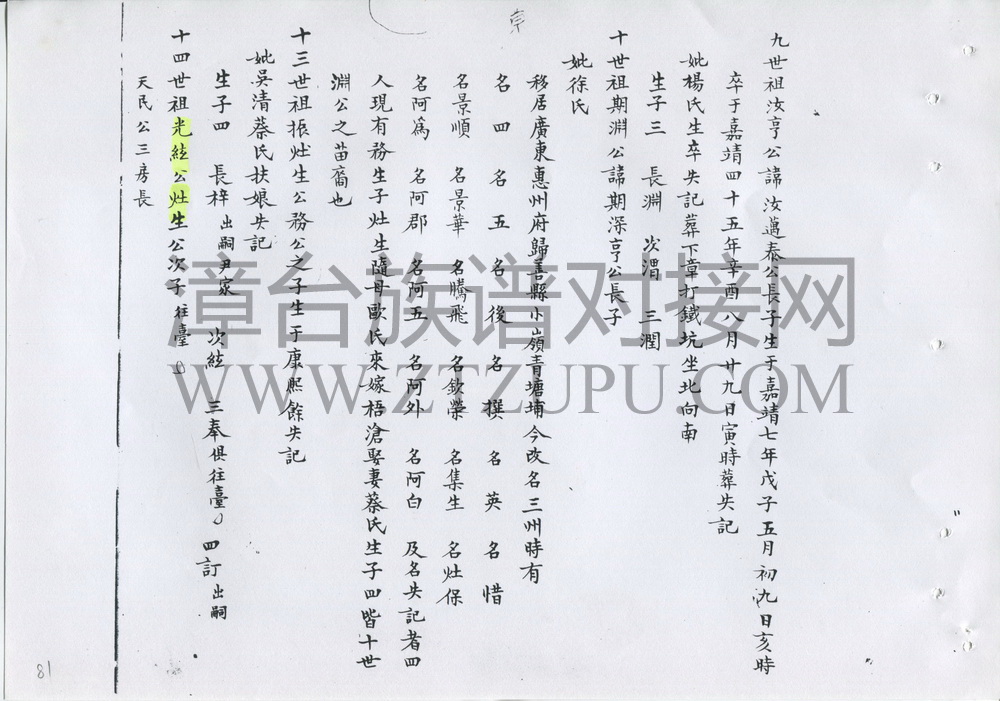 九世祖汝亨公諱汝邁泰公長子生于嘉靖七年戊子五月初九日亥時
卒于嘉靖四十五年辛酉八月廿九日寅時葬失記
妣楊氏生卒失記葬下章打鐵坑坐北向南
生子三 長淵 次渭 三潤
十世祖期淵公諱期深亨公長子
妣徐氏
移居廣東惠州府歸善縣小嶺青塘埔今改名三州時有
名四 名五 名後 名撰 名英 名惜
名景順 名景華 名騰飛 名欽榮 名集生 名灶保
名阿為 名阿郡 名阿五 名阿外 名阿白 及名失記者四
人現有務生子灶生隨母歐氏來嫁梧滄娶妻蔡氏生子四皆十世
淵公之苗裔也
十三世祖振灶生公務公之子生于康熙餘失記
妣吳清蔡氏扶娘失記
生子四 長梓出嗣尹家 次絃 三奉俱往臺 四訂出嗣
十四世祖光絃公灶生公次子往臺
天民公三房長
章台族谱对接网
WWW.ZTZUPU.COM
81